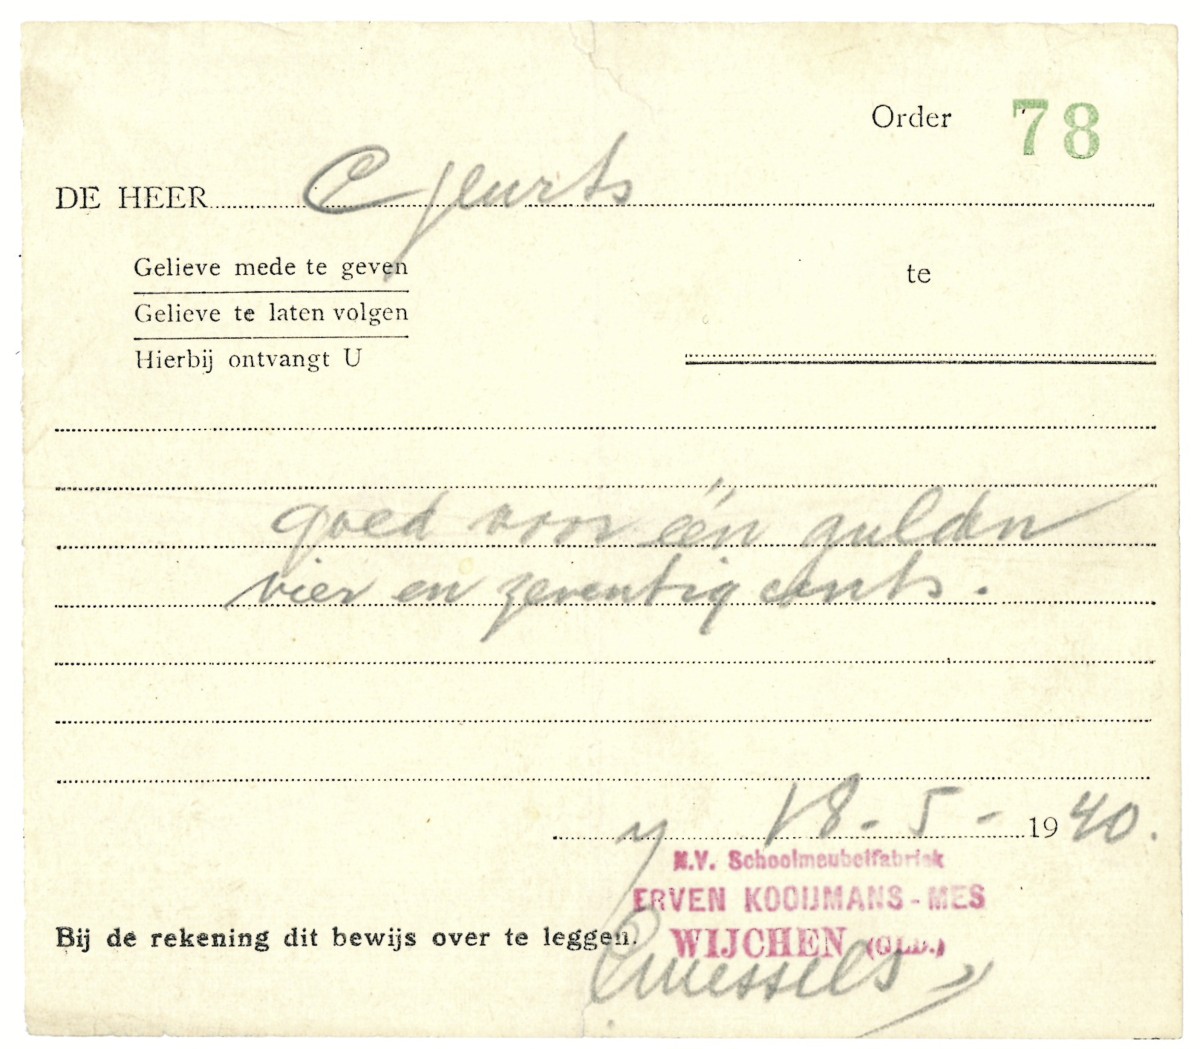 Order 78
DE HEER C Geurts
Gelieve mede te geven
te
Gelieve te laten volgen
Hierbij ontvangt U
goed voor één gulden
vier en zeventig cents.
18-5-1940.
N.V. Schoolmeubelfabriek
ERVEN KOOIJMANS-MES
Bij de rekening dit bewijs over te leggen.
WIJCHEN (GLD.)